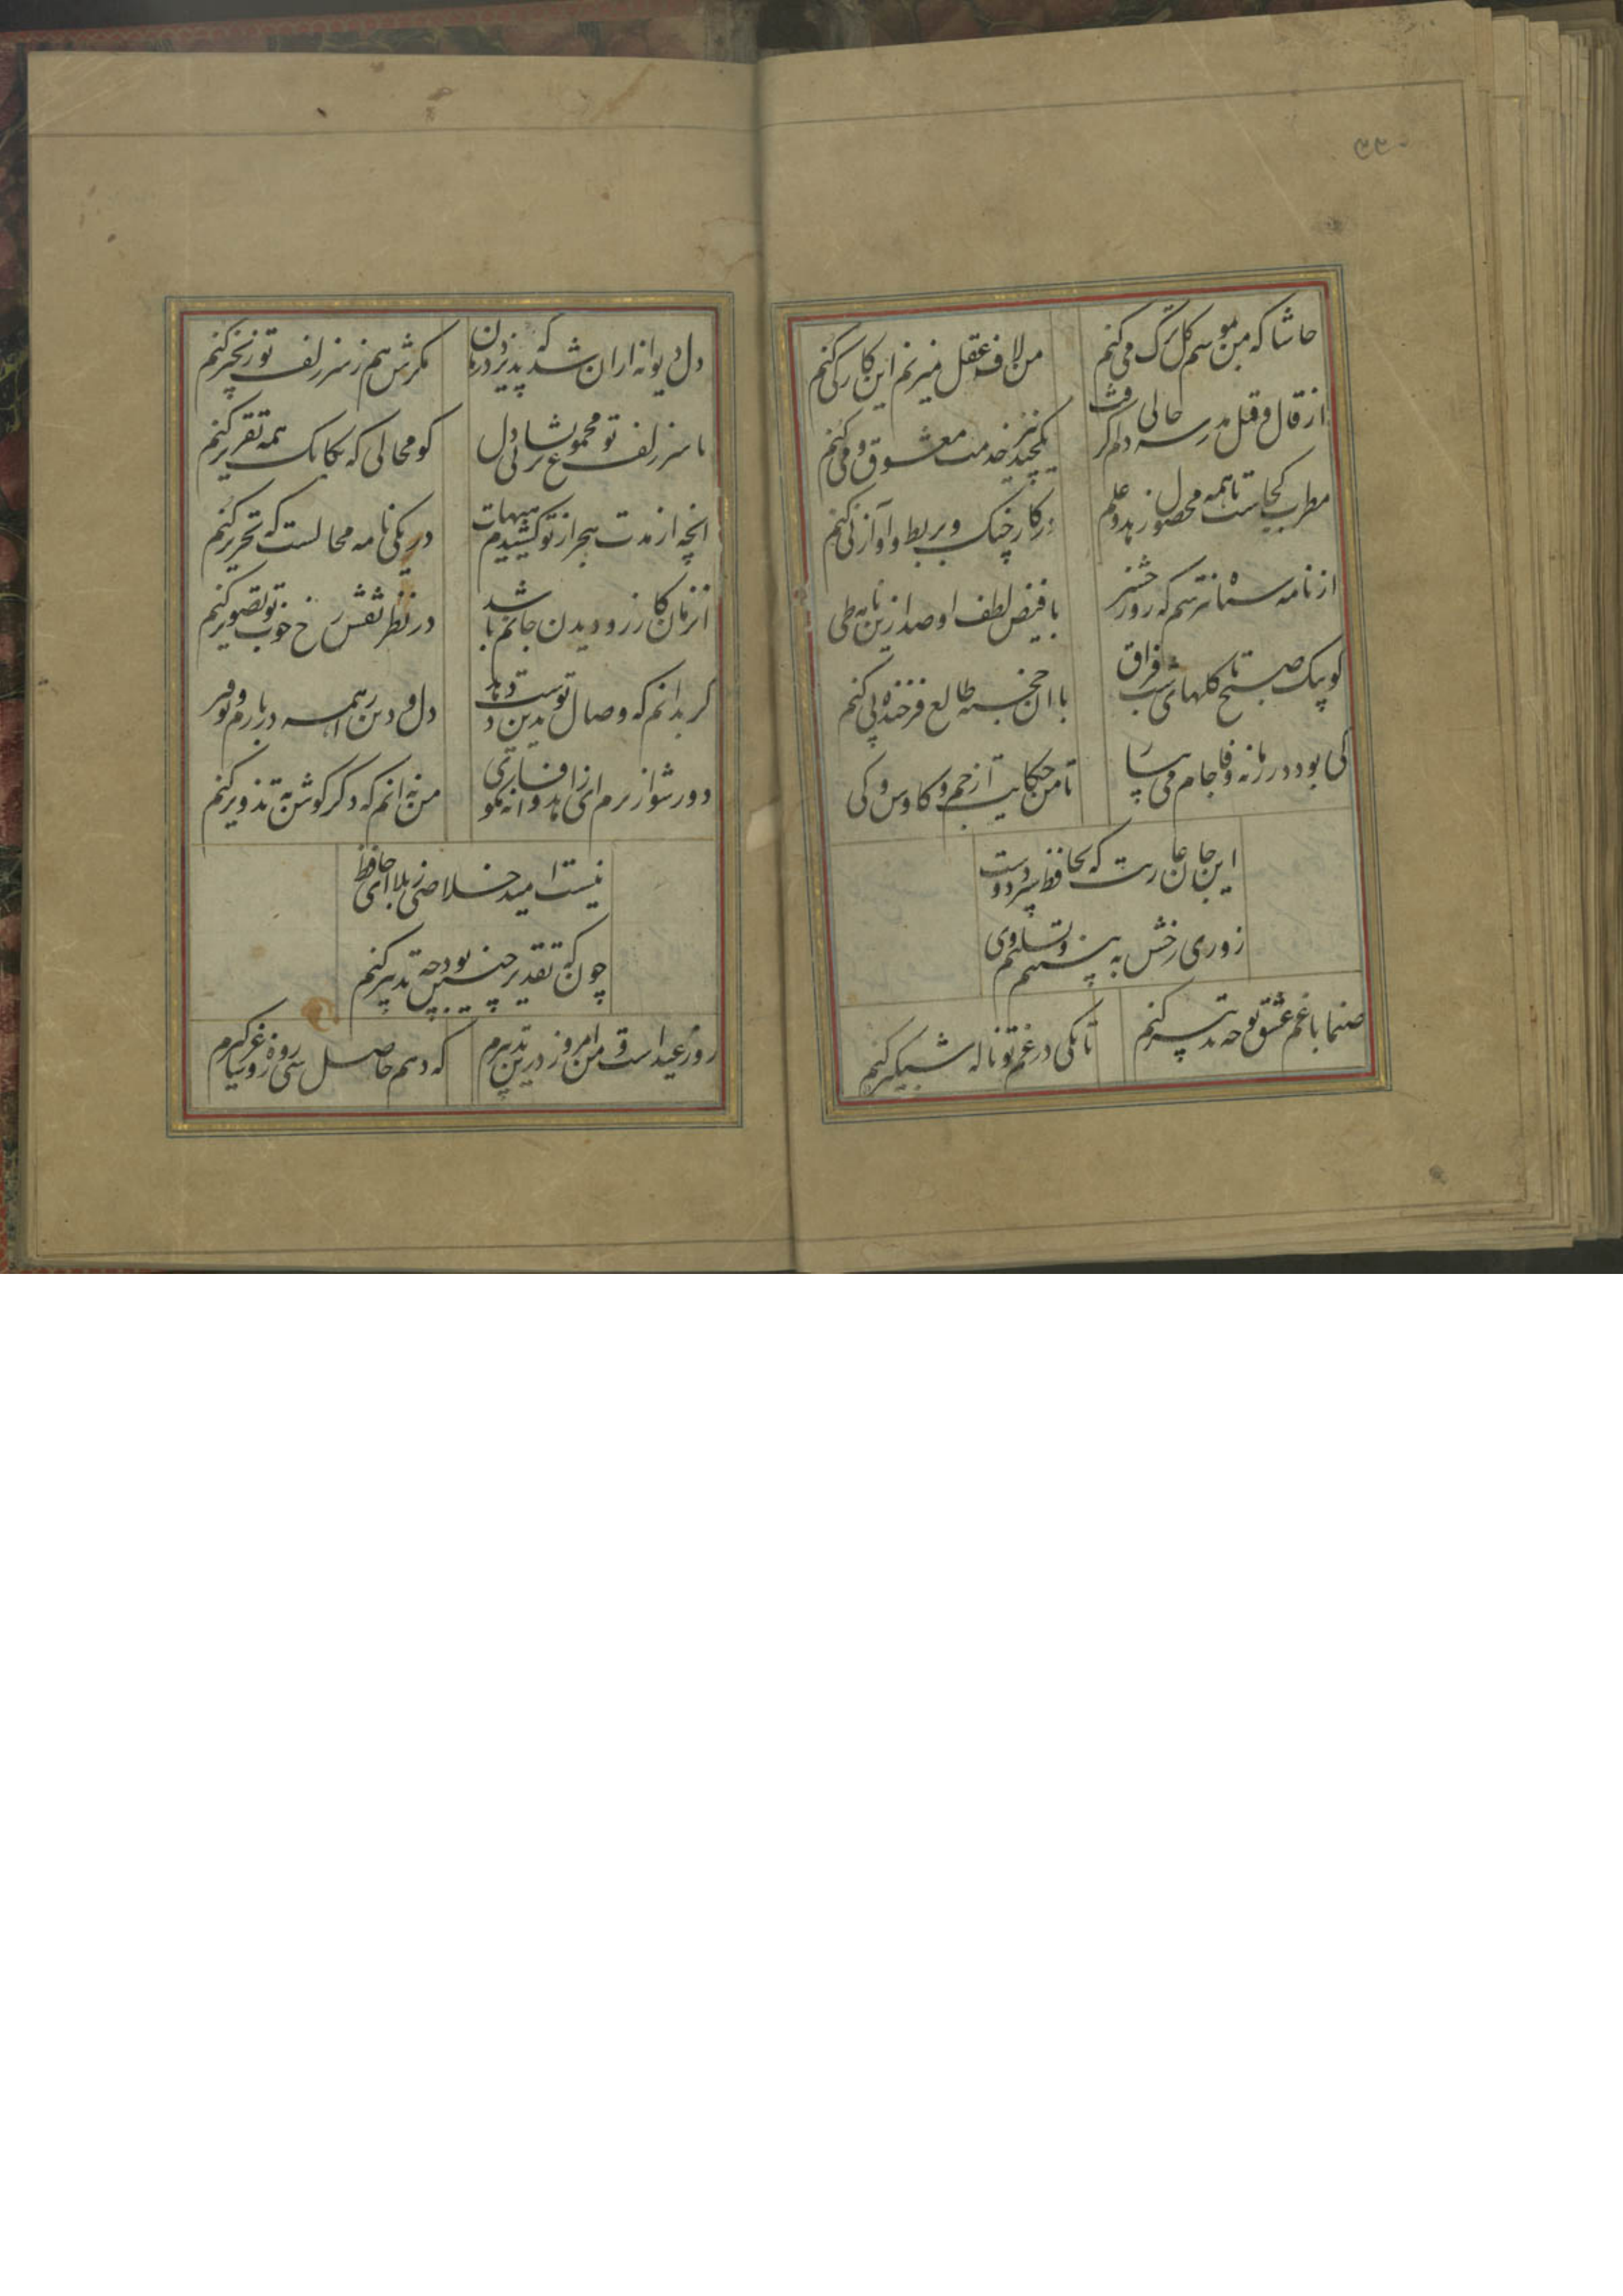 ۳۳۰
حاشا که من بموسم کل ترک می کنم
من لاف عقل میزنم این کار کی کنم
از قال و قیل مدرسه حالی دلم گرفت
یکچند نیز خدمت معشوق و می کنم
مطرب کجاست تا همه محصول زهد و علم
در کار چنک و بربط و آواز نی کنم
از نامه سیاه نترسم که روز حشر
با فیض لطف او صد ازین نامه طی کنم
کو پیک صبح تا کلهای شب فراق
با ان خجسته طالع فرخنده پی کنم
کی بود در زمانه وفا جام می بیا
تا من حکایت از جم و کاوس و کی کنم
این جان عاریت که بحافظ سپرد دوست
روزی رخش به بینم و تسلیم وی کنم
صنما با غم عشق تو چه تدبیر کنم
تا بکی در غم تو ناله شبکیر کنم
دل دیوانه ازان شد که پذیرد درمان
مکرش هم ز سر زلف تو زنجیر کنم
با سر زلف تو مجموع پریشانی دل
کو محالی که یکایک همه تقریر کنم
انچه از مدت هجر از تو کشیدم هیهات
در یکی نامه محالست که تحریر کنم
انزمان کارزو دیدن جانم باشد
در نظر نقش رخ خوب تو تصویر کنم
کر بدانم که وصال تو بدین دست دهد
دل و دین را همه در بازم و توفیر کنم
دور شو از برم ای زاهد و افسانه مکو
من نه انم که دکر کوش به تذویر کنم
نیست امید خلاصی ز بلا ای حافظ
چون که تقدیر چنین بود چه تدبیر کنم
روز عید است و من امروز درین تدبیرم
که دهم حاصل سی روزه و ساغر کیرم